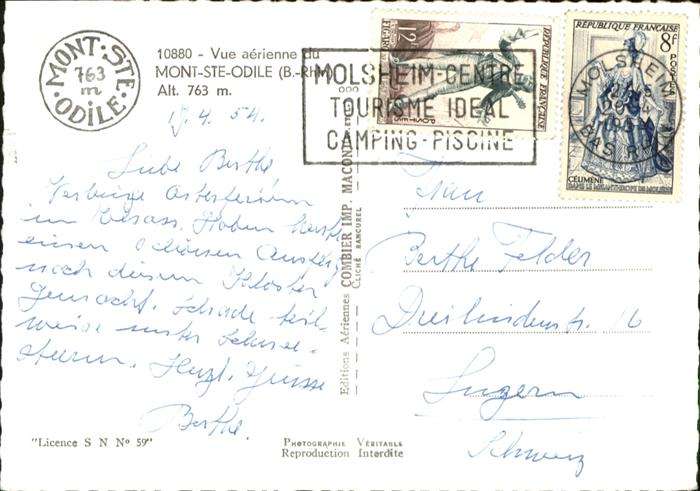 MONT-STE-ODILE
763
m
10880 - Vue aérienne du
MONT-STE-ODILE (B.-Rhin)
Alt. 763 m.
MOLSHEIM-CENTRE
TOURISME IDEAL
CAMPING-PISCINE
12F
RÉPUBLIQUE FRANÇAISE
FIGARO
POSTES
RÉPUBLIQUE FRANÇAISE
8F
POSTES
CÉLIMÈNE
DANS LE MISANTHROPE DE MOLIÈRE
MOLSHEIM
BAS RHIN
17.4.54.
Liebe Berthe
Verbringe Osterferien
im Elsass. Haben heute
einen schönen Ausflug
nach diesem Kloster
gemacht. Schade teil-
weise unter
Herzl. Grüsse
Berthe.
Frau
Berthe Felder
Dreilindenstr. 16
Luzern
Schweiz
Editions Aériennes COMBIER IMP. MACON
CLICHÉ RANCUREL
"Licence S N N° 59"
PHOTOGRAPHIE VÉRITABLE
Reproduction Interdite